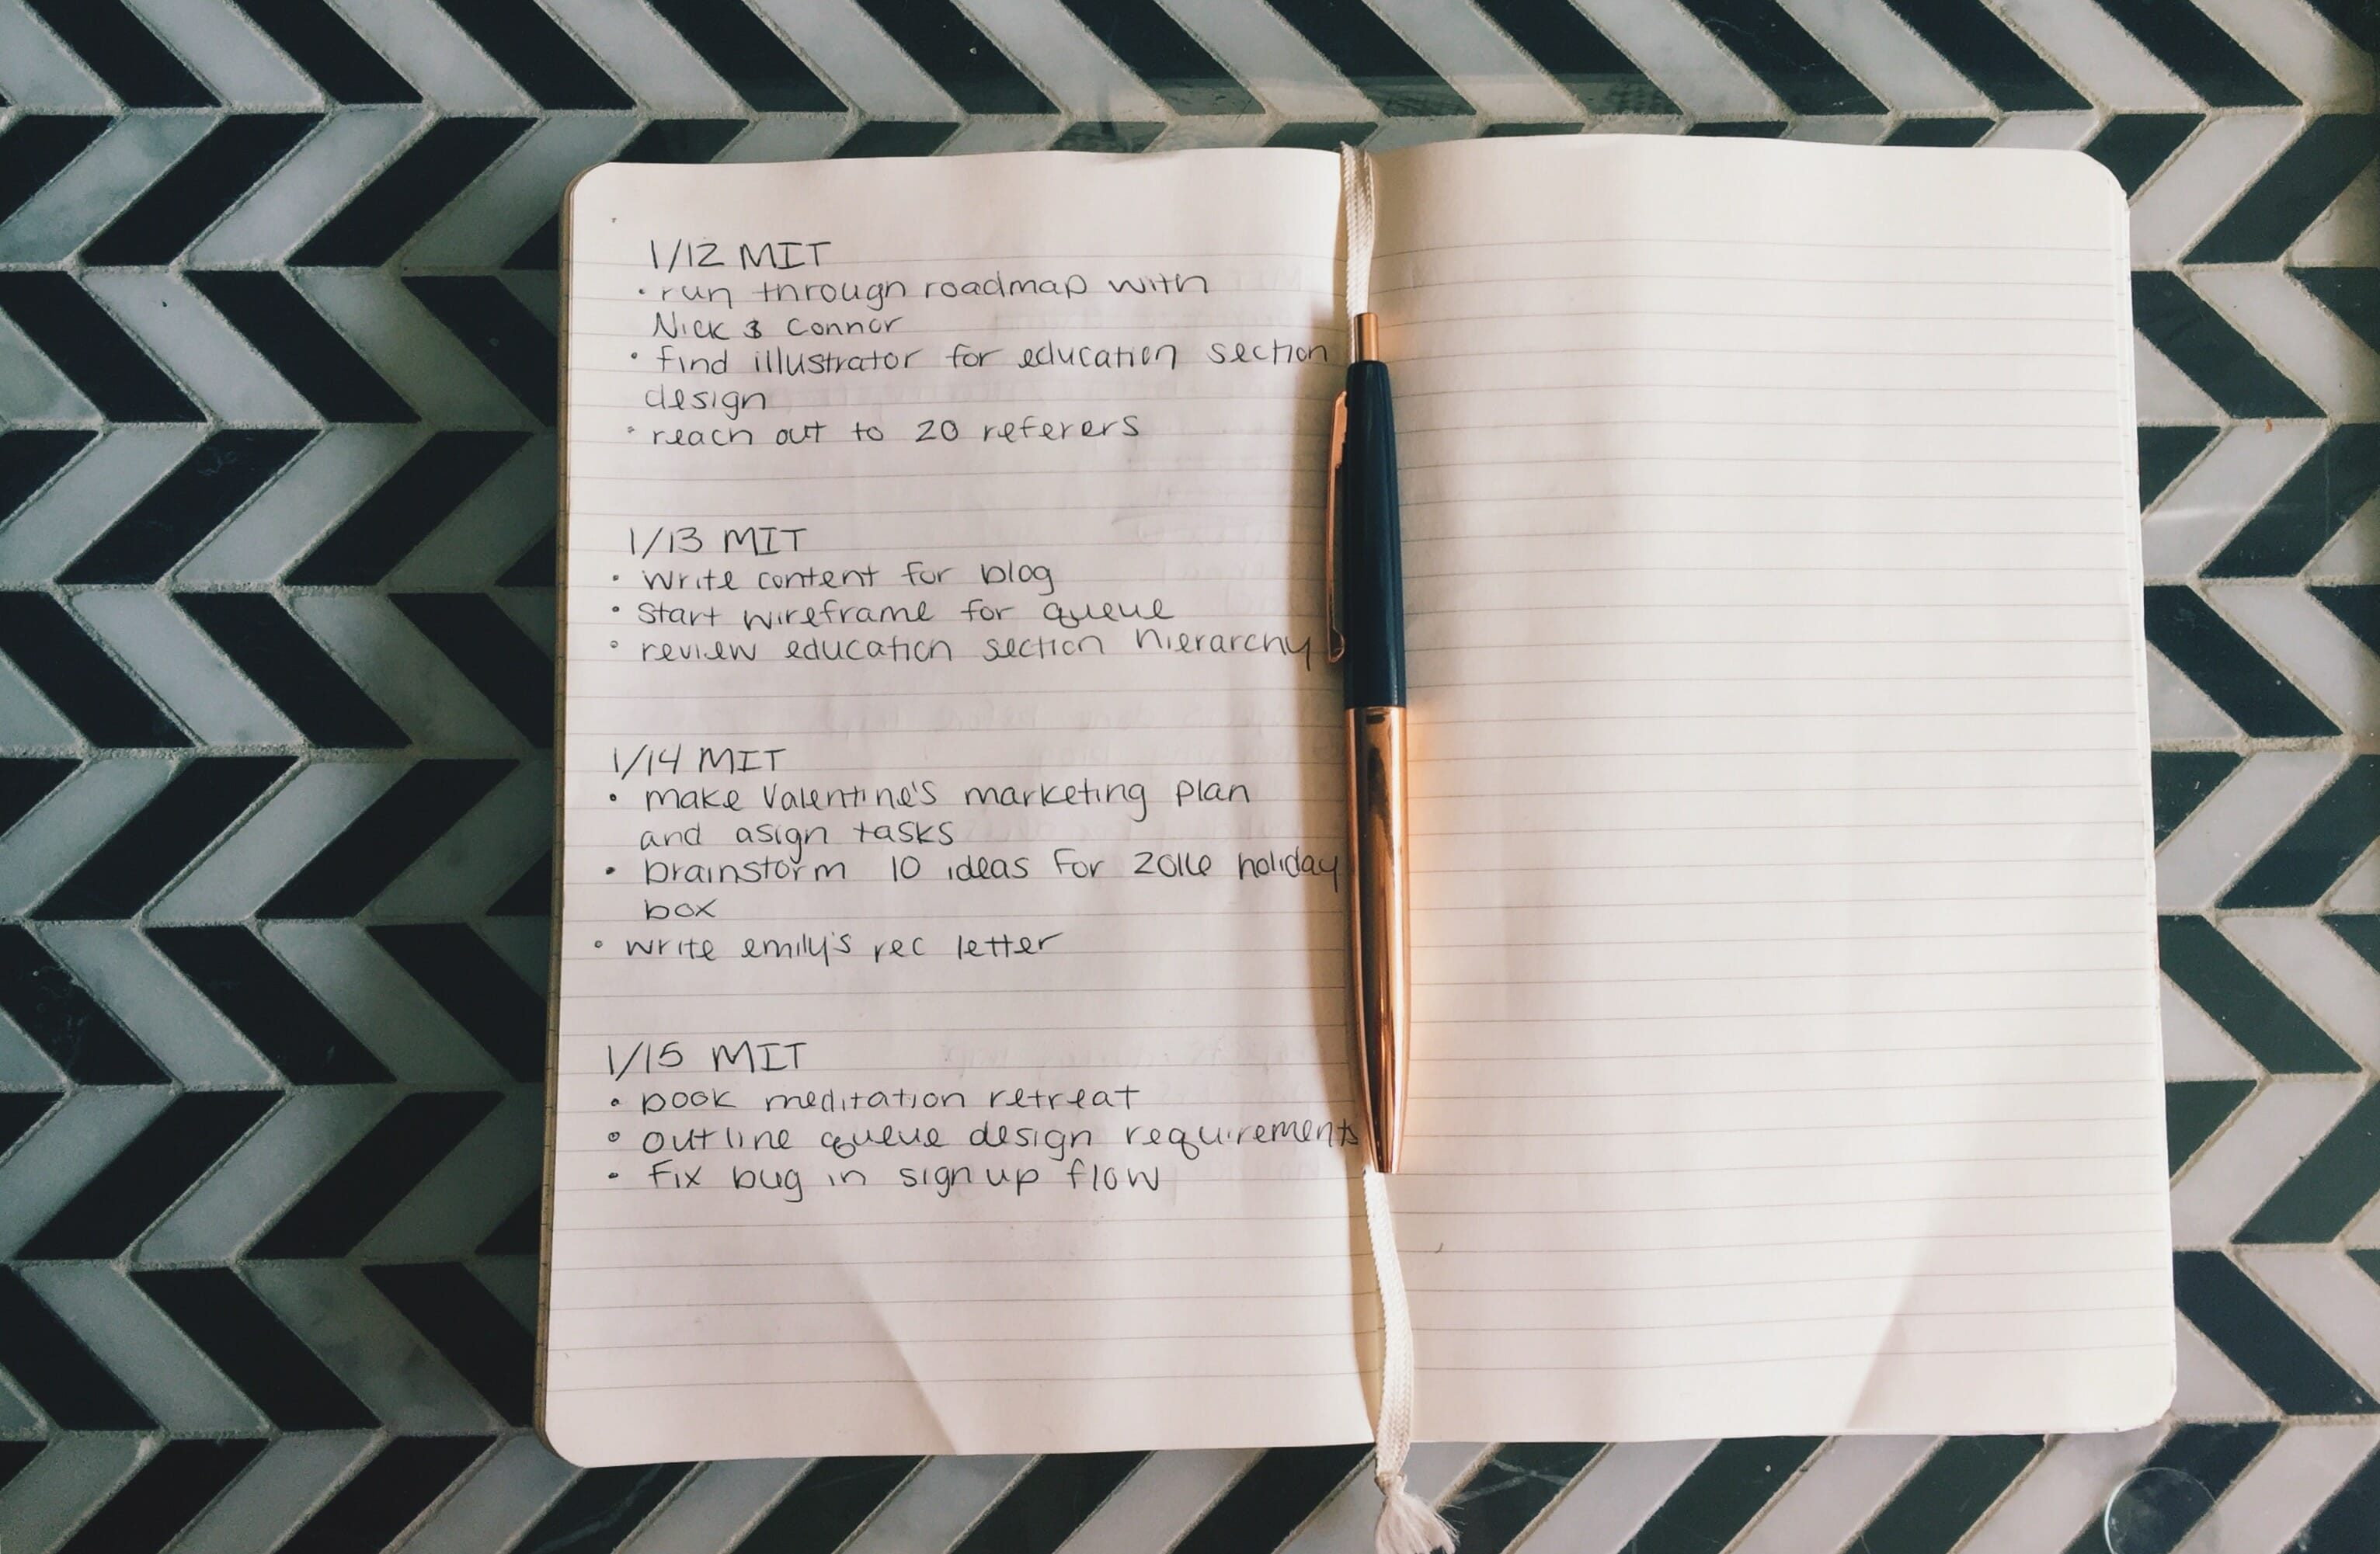 1/12 MIT
• run through roadmap with
Nick & Connor
• find illustrator for education section
design
• reach out to 20 referers
1/13 MIT
• write content for blog
• start wireframe for queue
• review education section hierarchy
1/14 MIT
• make Valentine's marketing plan
and asign tasks
• brainstorm 10 ideas for 2016 holiday
box
• write emily's rec letter
1/15 MIT
• book meditation retreat
• outline queue design requirements
• fix bug in sign up flow